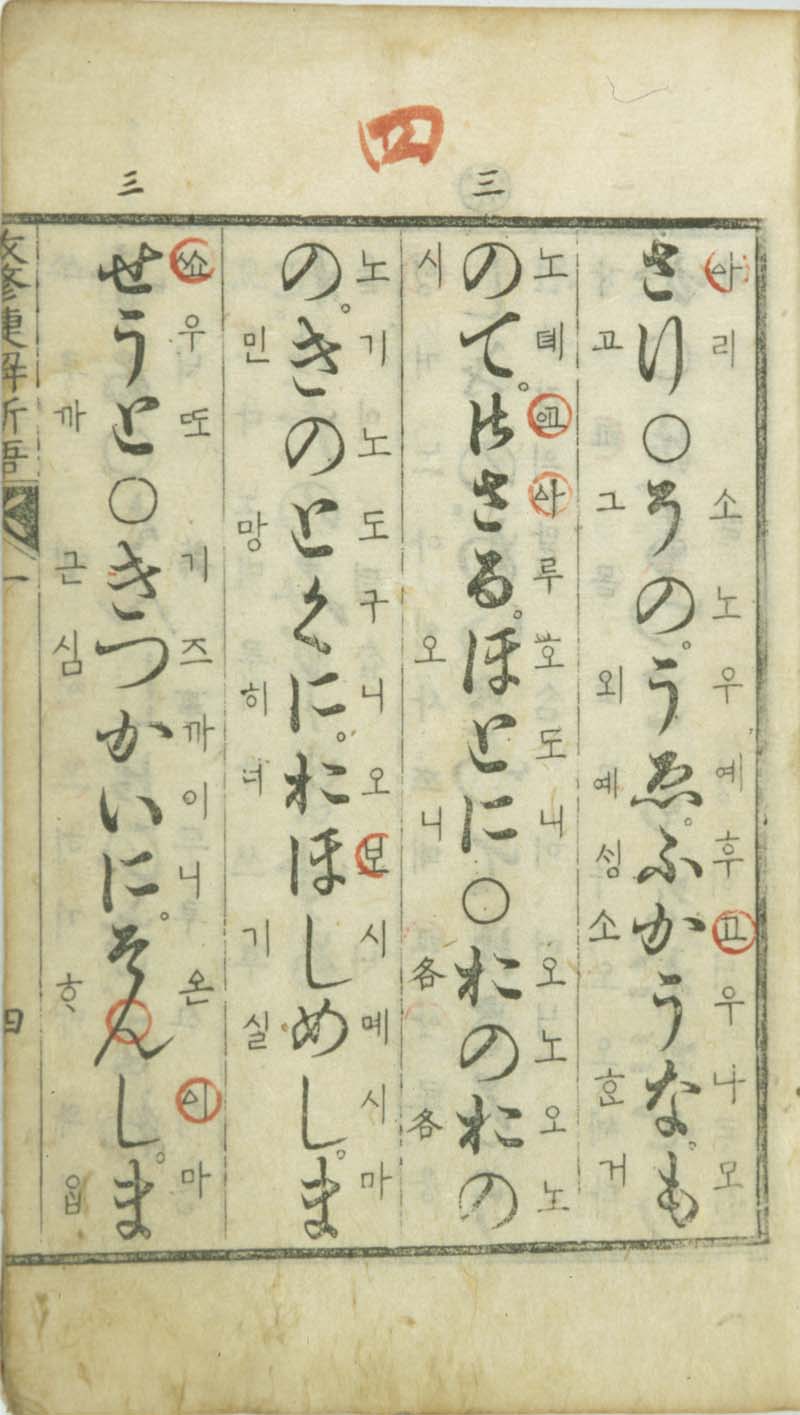 四
三
三
ᅀᅡ리 소노우예후고우나모
さり○そのうゑ。ふかうな。も
고 그 외 예셩소 ᄒᆞᆫ거
노톄고ᅀᅡ루호도니 오노오노
のて。御さる。ほとに○おのおの
시 오니 各各
노기노도구니오보시몌시마
の。きのとくに。おほしめし。ま
민망히녀기실
ᅀᅭ우또 기즈까이니 온ᅀᅵ마
せうと○きつかいに。そんし。ま
까 근심ᄒᆞ읍
改修捷解新語 一 四